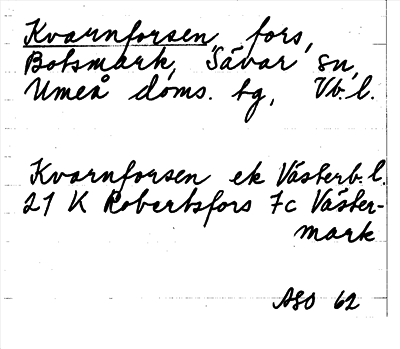 Kvarnforsen, fors,
Botsmark, Sävar sn,
Umeå doms. tg, Vb.l.
Kvarnforsen ek Västerb.l.
21 K Robertsfors 7c Väster-
mark
ASO 62